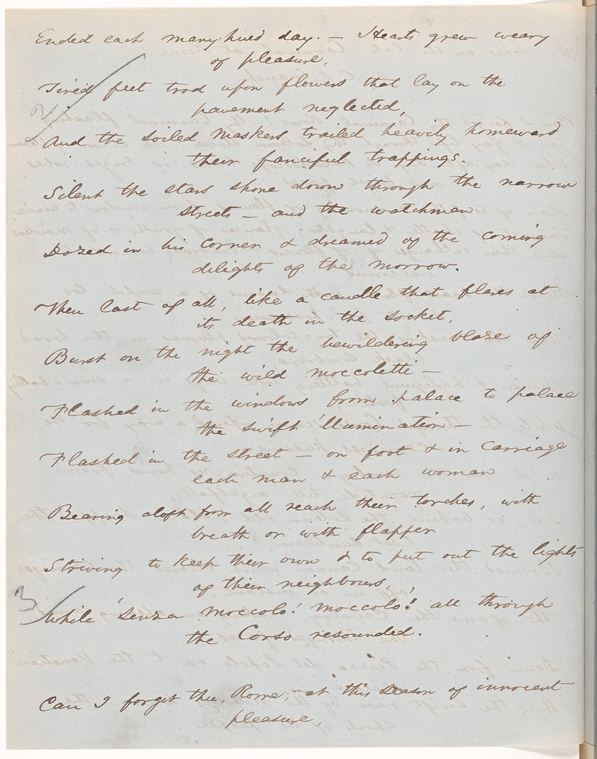 Ended each many-hued day. — Hearts grew weary
of pleasure,
Tired feet trod upon flowers that lay on the
pavement neglected,
2
And the soiled Maskers trailed heavily homeward
their fanciful trappings.
Silent the stars shone down through the narrow
streets — and the watchman
Dozed in his corner & dreamed of the coming
delights of the morrow.
Then last of all, like a candle that flares at
its death in the socket,
Burst on the night the bewildering blaze of
the wild moccolette —
Flashed in the windows from palace to palace
the swift illumination —
Flashed in the street — on foot & in carriage
each man & each woman
Bearing aloft from all reach their torches, with
breath or with flapper
Striving to keep their own & to put out the lights
of their neighbours,
3
While 'Senza moccolo! moccolo! all through
the Corso resounded.
Can I forget thee, Rome, at this season of innocent
pleasure,